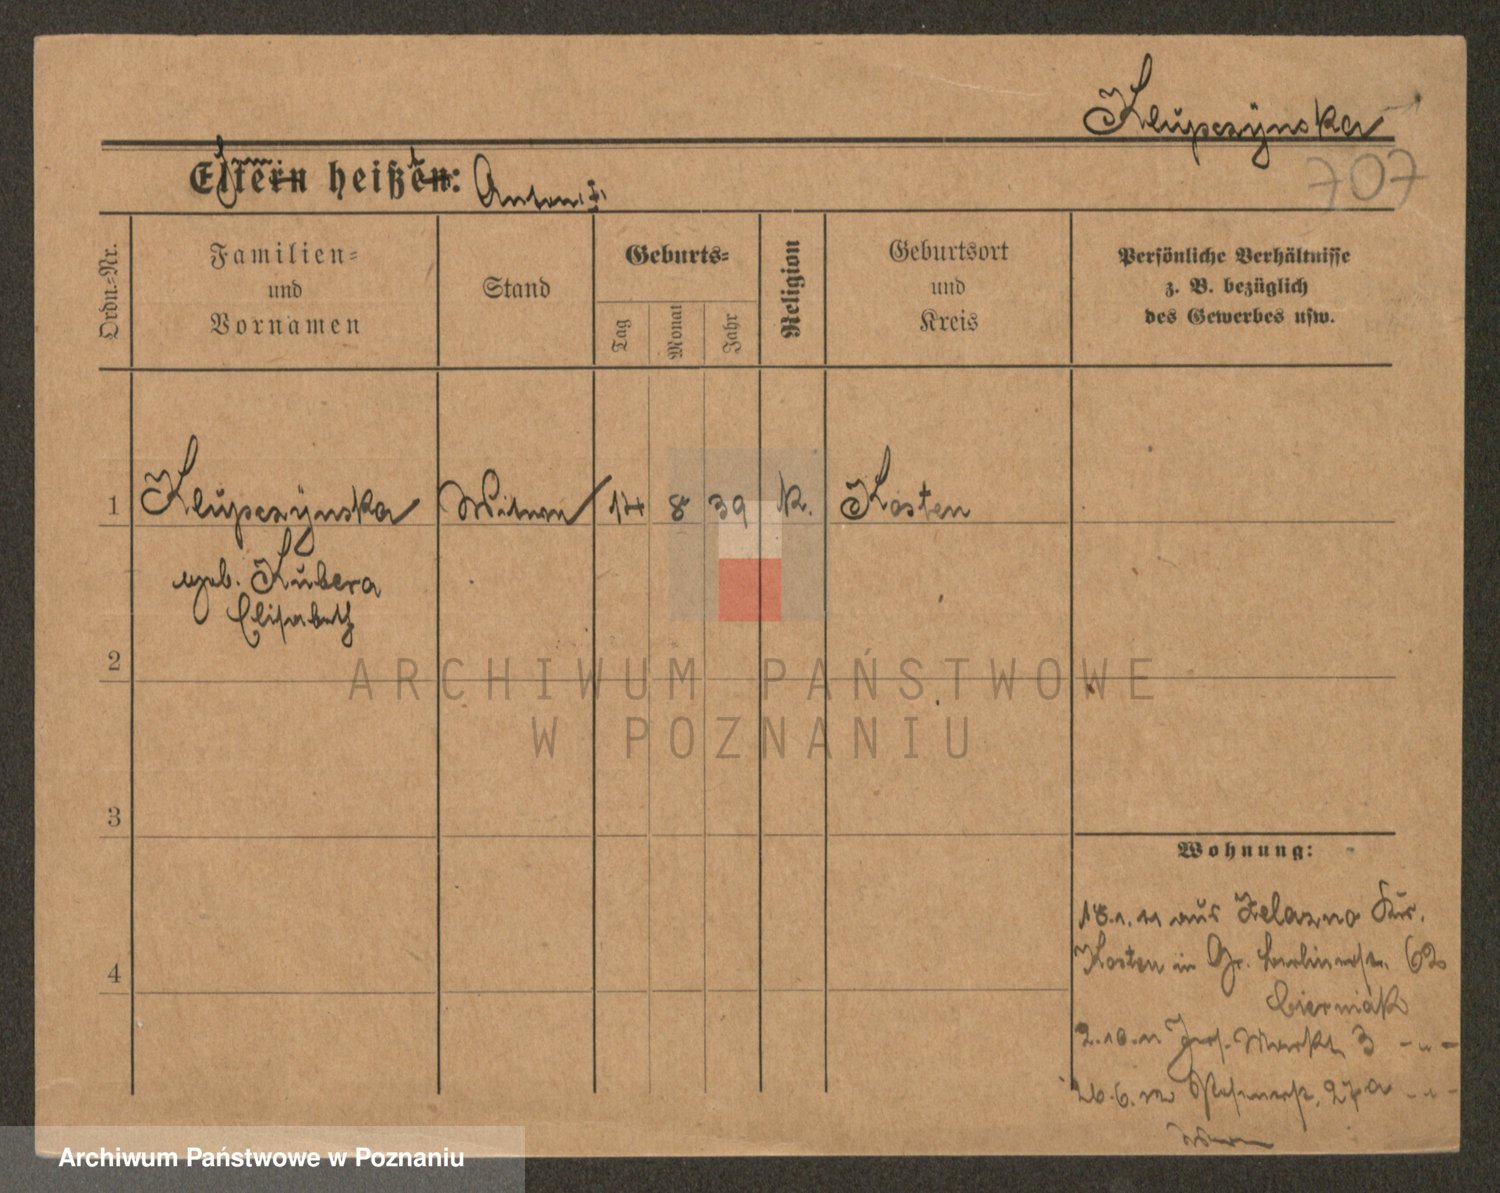 Klupczynska
707
Eltern heißen: Anton
Ordn.-Nr.
Familien-
und
Vornamen
Stand
Geburts-
Tag
Monat
Jahr
Religion
Geburtsort
und
Kreis
Persönliche Verhältnisse
z. B. bezüglich
des Gewerbes usw.
1 Klupczynska Witwe 14 8 39 k. Kosten
geb. Kubera
Elisabeth
2
3
4
Wohnung:
18.1.11 aus Zelazno Kr.
Kosten in Gr. Berlinerstr. 62
Bierniak
2.10.11 Markt 3 - " -
26.6.12 Posenerstr. 27a - " -
ARCHIWUM PAŃSTWOWE
W POZNANIU
Archiwum Państwowe w Poznaniu